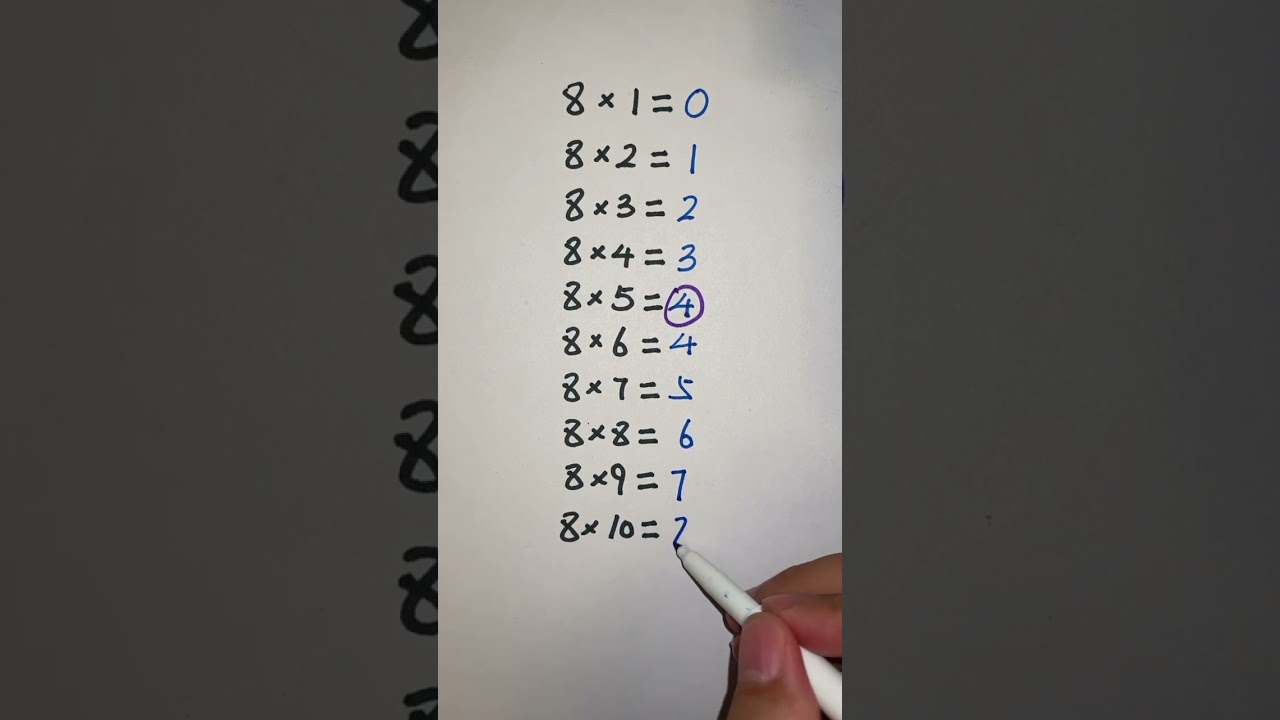 8 × 1 = 0
8 × 2 = 1
8 × 3 = 2
8 × 4 = 3
8 × 5 = 4
8 × 6 = 4
8 × 7 = 5
8 × 8 = 6
8 × 9 = 7
8 × 10 =